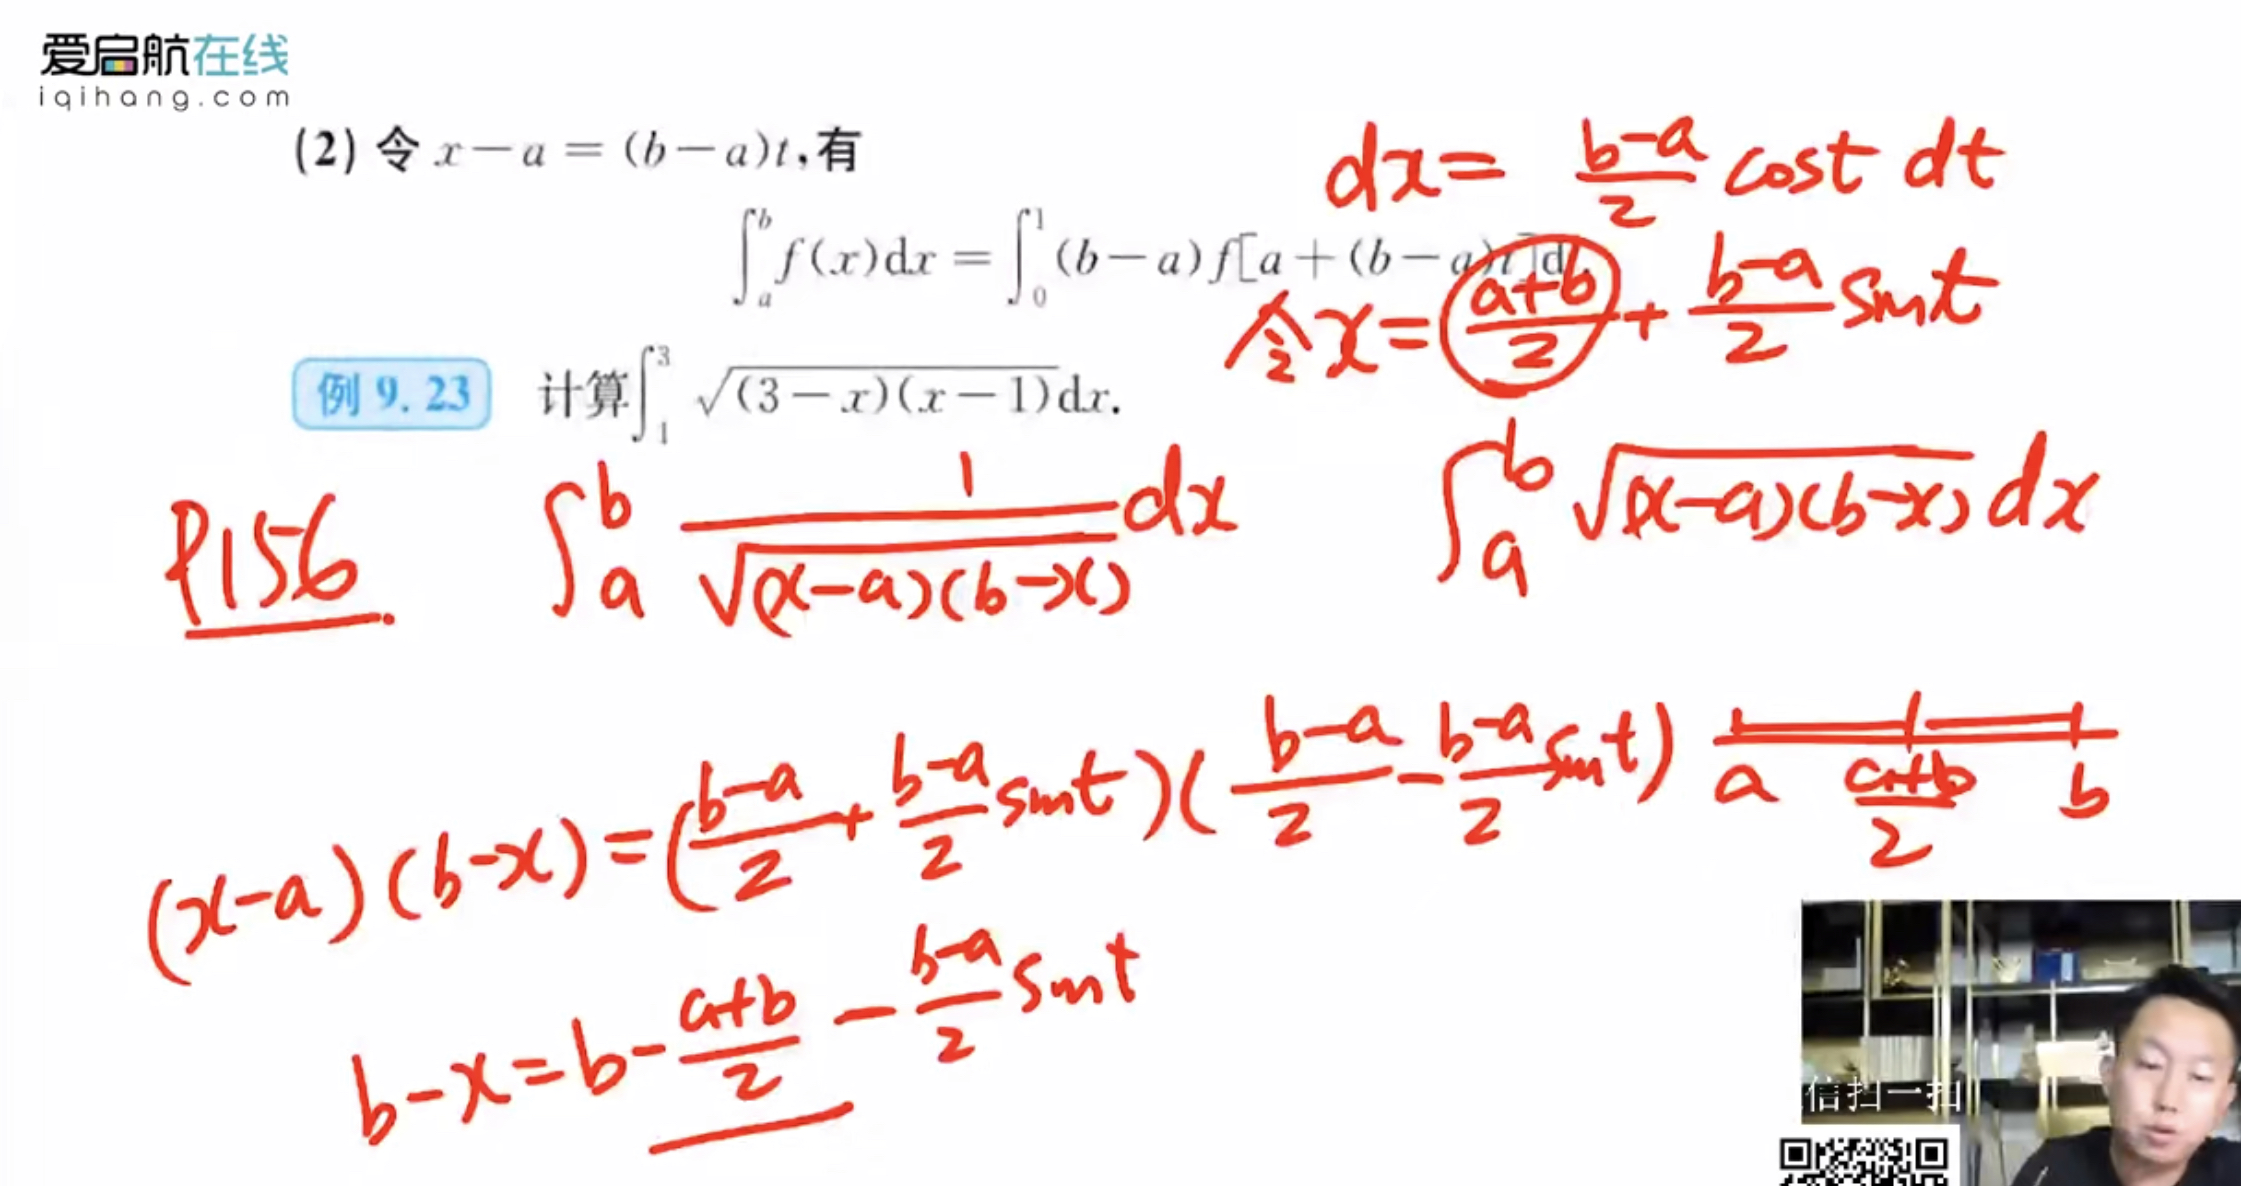 爱启航在线
iqihang.com
(2) 令 x－a = (b－a)t,有
∫_a^b f(x)dx = ∫_0^1 (b－a)f[a+(b－a)t]d
dx= (b-a)/2 cost dt
令x= (a+b)/2 + (b-a)/2 sint
例 9.23 计算∫_1^3 √((3－x)(x－1))dx.
P156 ∫_a^b 1/√((x-a)(b-x)) dx ∫_a^b √((x-a)(b-x)) dx
(x-a)(b-x)=((b-a)/2 + (b-a)/2 sint)((b-a)/2 - (b-a)/2 sint)
a (a+b)/2 b
b-x=b-(a+b)/2 - (b-a)/2 sint
信扫一扫